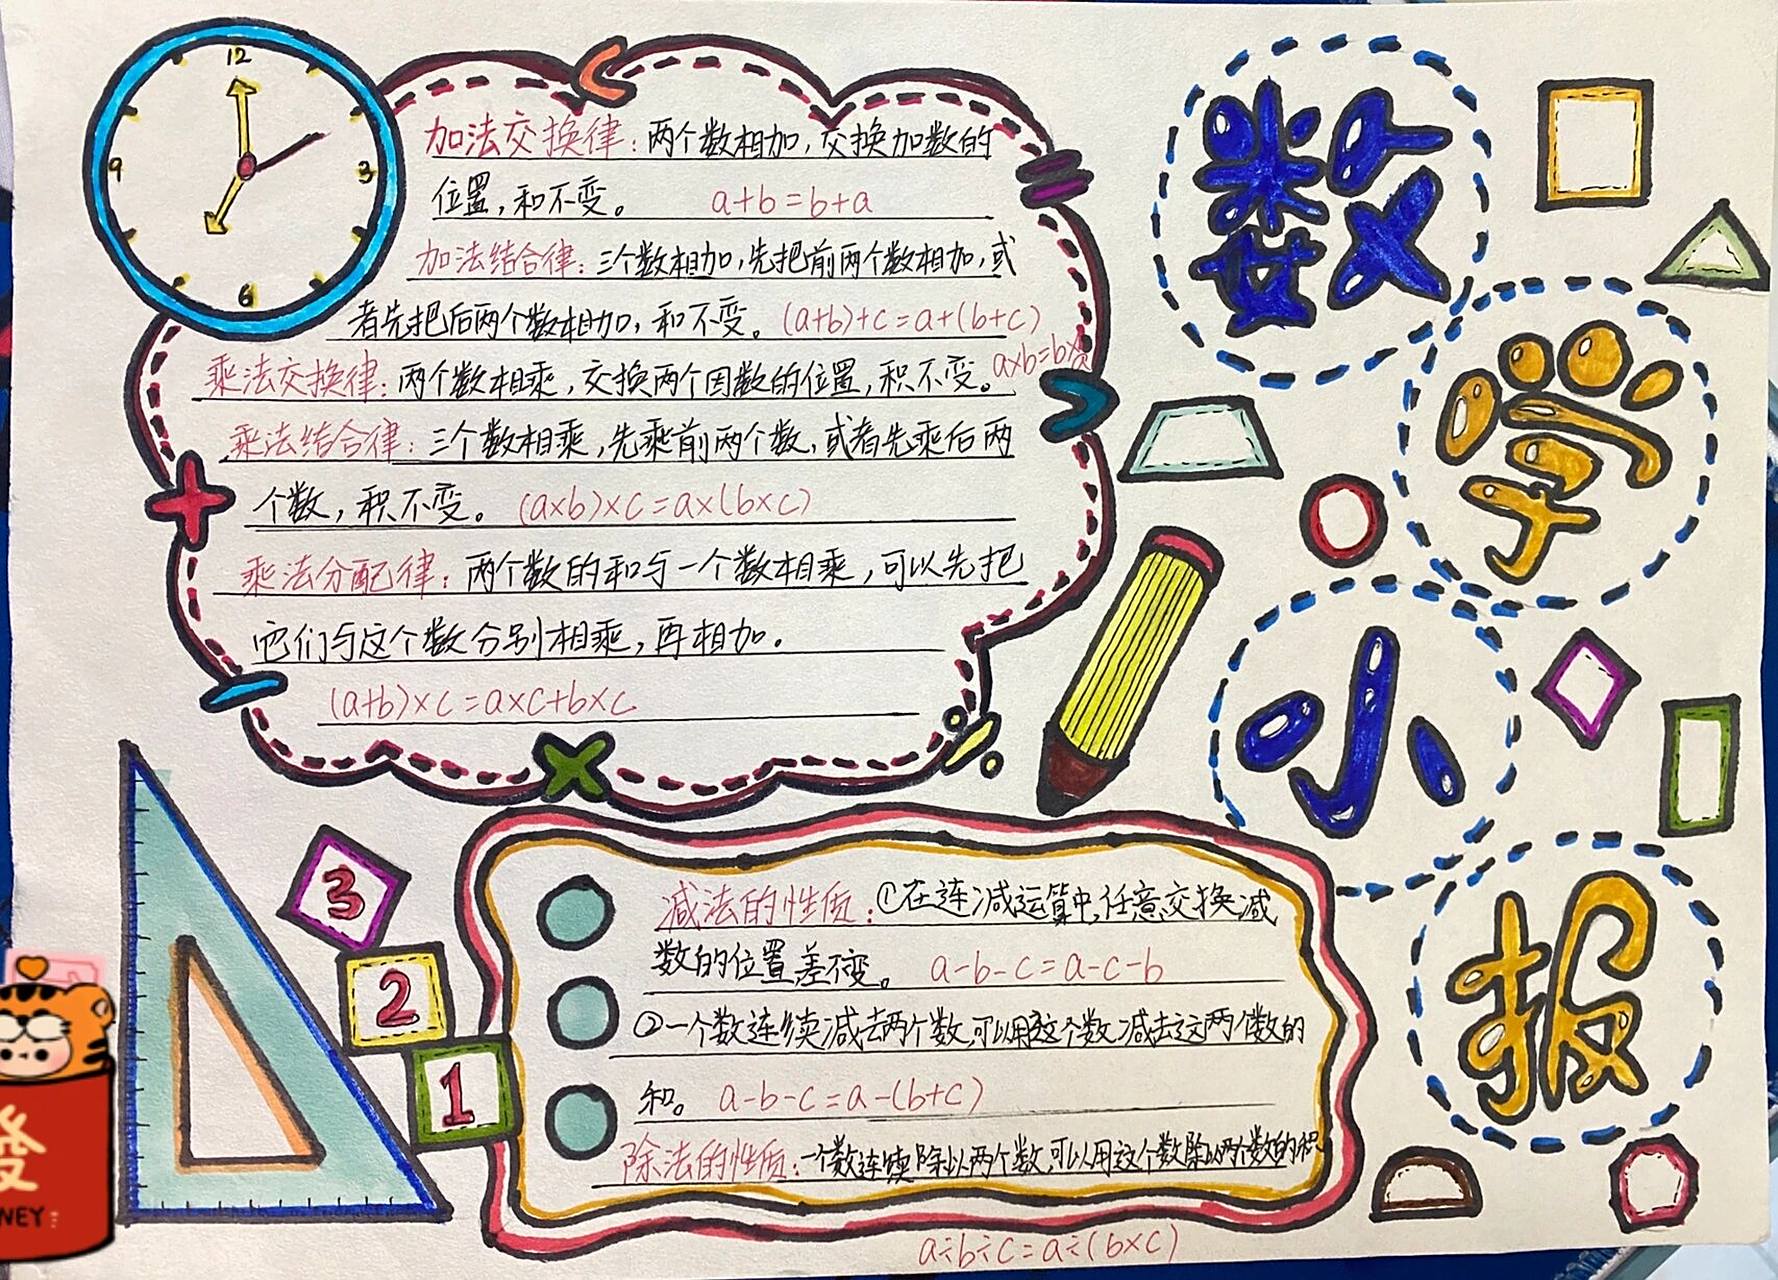 12
3
6
9
加法交换律：两个数相加，交换加数的
位置，和不变。 a+b=b+a
加法结合律：三个数相加，先把前两个数相加，或
者先把后两个数相加，和不变。(a+b)+c=a+(b+c)
乘法交换律：两个数相乘，交换两个因数的位置，积不变。a×b=b×a
乘法结合律：三个数相乘，先乘前两个数，或者先乘后两
个数，积不变。(a×b)×c=a×(b×c)
乘法分配律：两个数的和与一个数相乘，可以先把
它们与这个数分别相乘，再相加。
(a+b)×c=a×c+b×c
数
学
小
报
3
2
1
减法的性质：①在连减运算中，任意交换减
数的位置，差不变。 a-b-c=a-c-b
②一个数连续减去两个数，可以用这个数减去这两个数的
和。 a-b-c=a-(b+c)
除法的性质：一个数连续除以两个数，可以用这个数除以两个数的积
a÷b÷c=a÷(b×c)
發
NEY